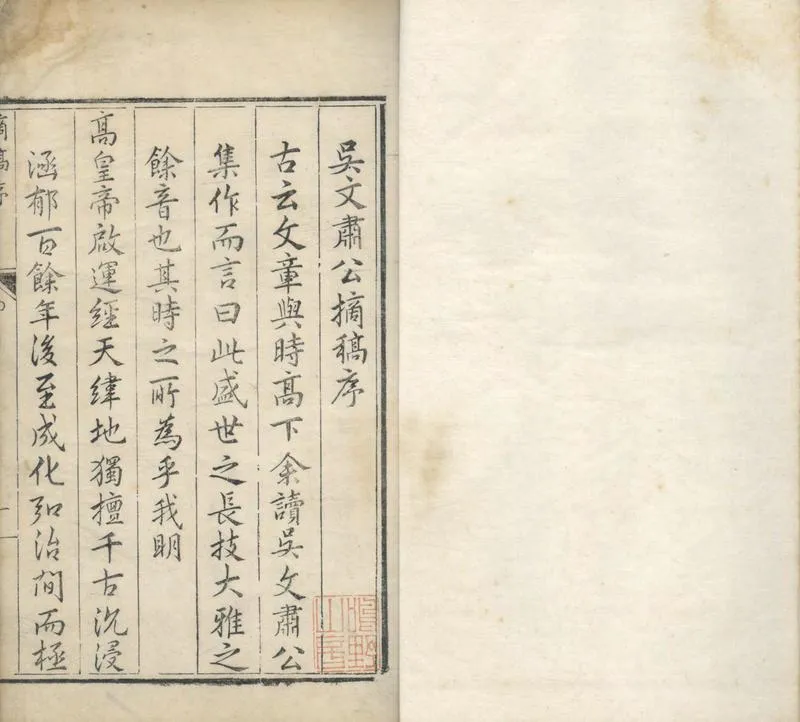 吳文肅公摘稿序
古云文章與時高下余讀吳文肅公
集作而言曰此盛世之長技大雅之
餘音也其時之所為乎我明
高皇帝啟運經天緯地獨擅千古沉浸
涵郁百餘年後至成化弘治間而極
摘稿序